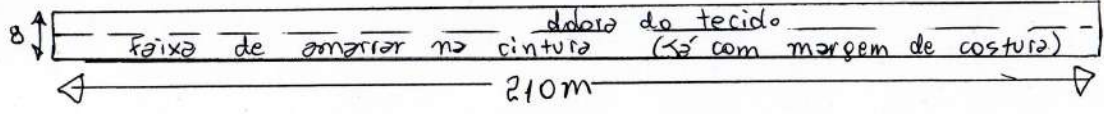 dobra do tecido
8 faixa de amarrar na cintura (Já com margem de costura)
210m